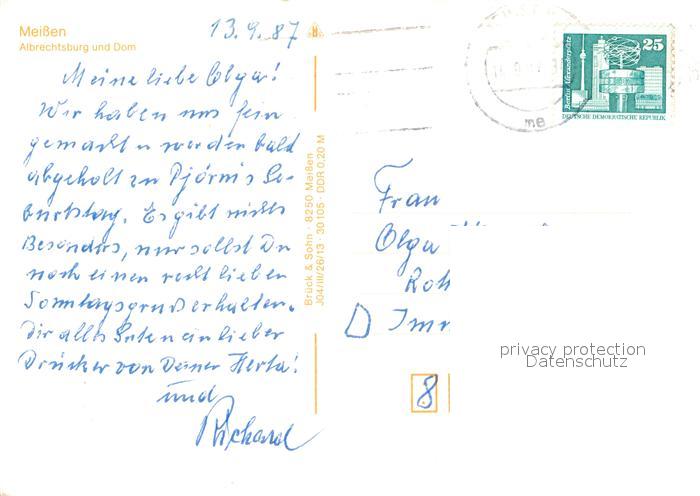 Meißen
Albrechtsburg und Dom
13.9.87
Meine liebe Olga!
Wir haben uns fein
gemacht u werden bald
abgeholt zu Björnis Ge-
burtstag. Es gibt nichts
Besonders, nur sollst Du
noch einen recht lieben
Sonntagsgruß erhalten.
Dir alles Guten ein lieber
Drücker von Deiner Herta!
und
Richard
Brück & Sohn · 8250 Meißen
J04/III/26/13 30105 · DDR 0,20 M
25
Berlin, Alexanderplatz
DEUTSCHE DEMOKRATISCHE REPUBLIK
Frau
Olga
D
8
privacy protection
Datenschutz